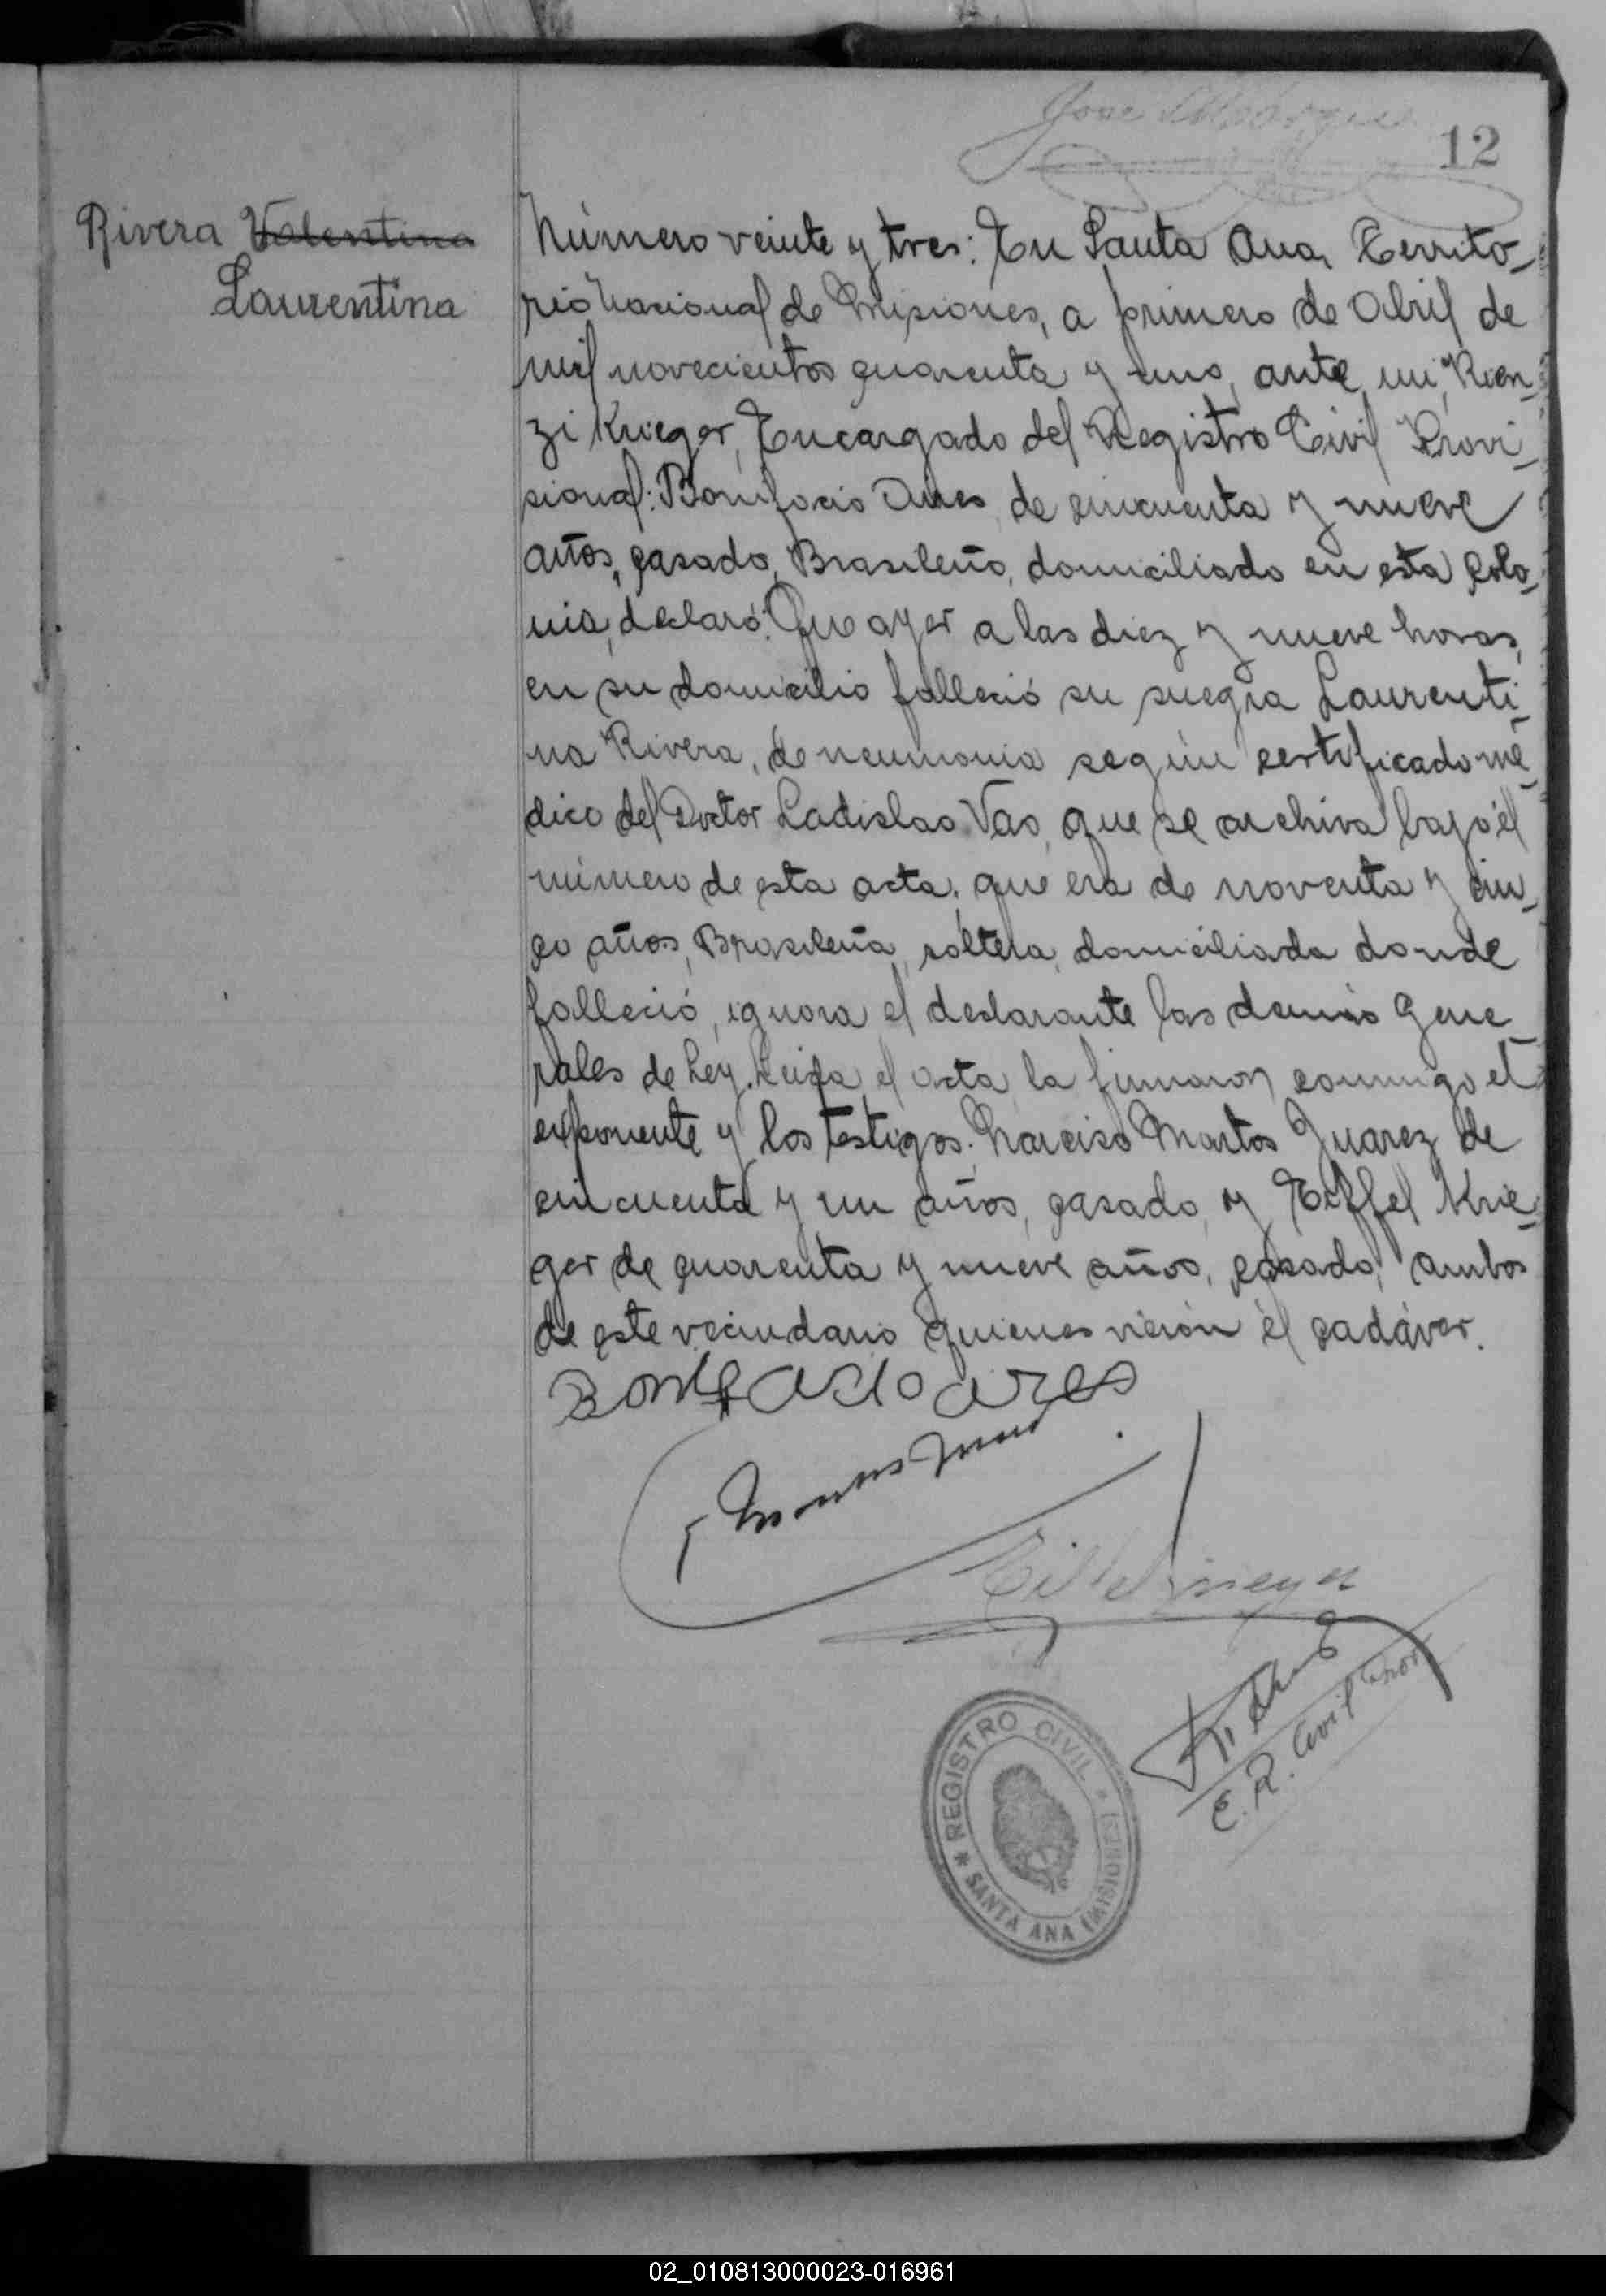 12
Rivera Valentina
Laurentina
Número veinte y tres: En Santa Ana, Territo-
rio Nacional de Misiones, a primero de Abril de
mil novecientos quarenta y uno, ante mi, Rien-
zi Krieger, Encargado del Registro Civil Provi-
sional: Bonifacio Ares de cincuenta y nueve
años, casado, Brasileño, domiciliado en esta Colo-
nia, declaró: Que ayer a las diez y nueve horas,
en su domicilio falleció su suegra Laurenti-
na Rivera, de neumonia según certificado mé-
dico del Doctor Ladislao Vas, que se archiva bajo él
número de esta acta; que era de noventa y cin-
co años, Brasileña, soltera, domiciliada donde
falleció, ignora el declarante las demás gene-
rales de Ley. Leida el acta la firmaron conmigo el
exponente y los testigos: Narciso Martos Juarez de
cincuenta y un años, casado, y Eiffel Krie-
ger de quarenta y nueve años, casado, ambos
de este vecindario quienes vieron él cadáver.
Bonifacio ares
E. R. Civil
REGISTRO CIVIL * SANTA ANA (MISIONES)
02_010813000023-016961